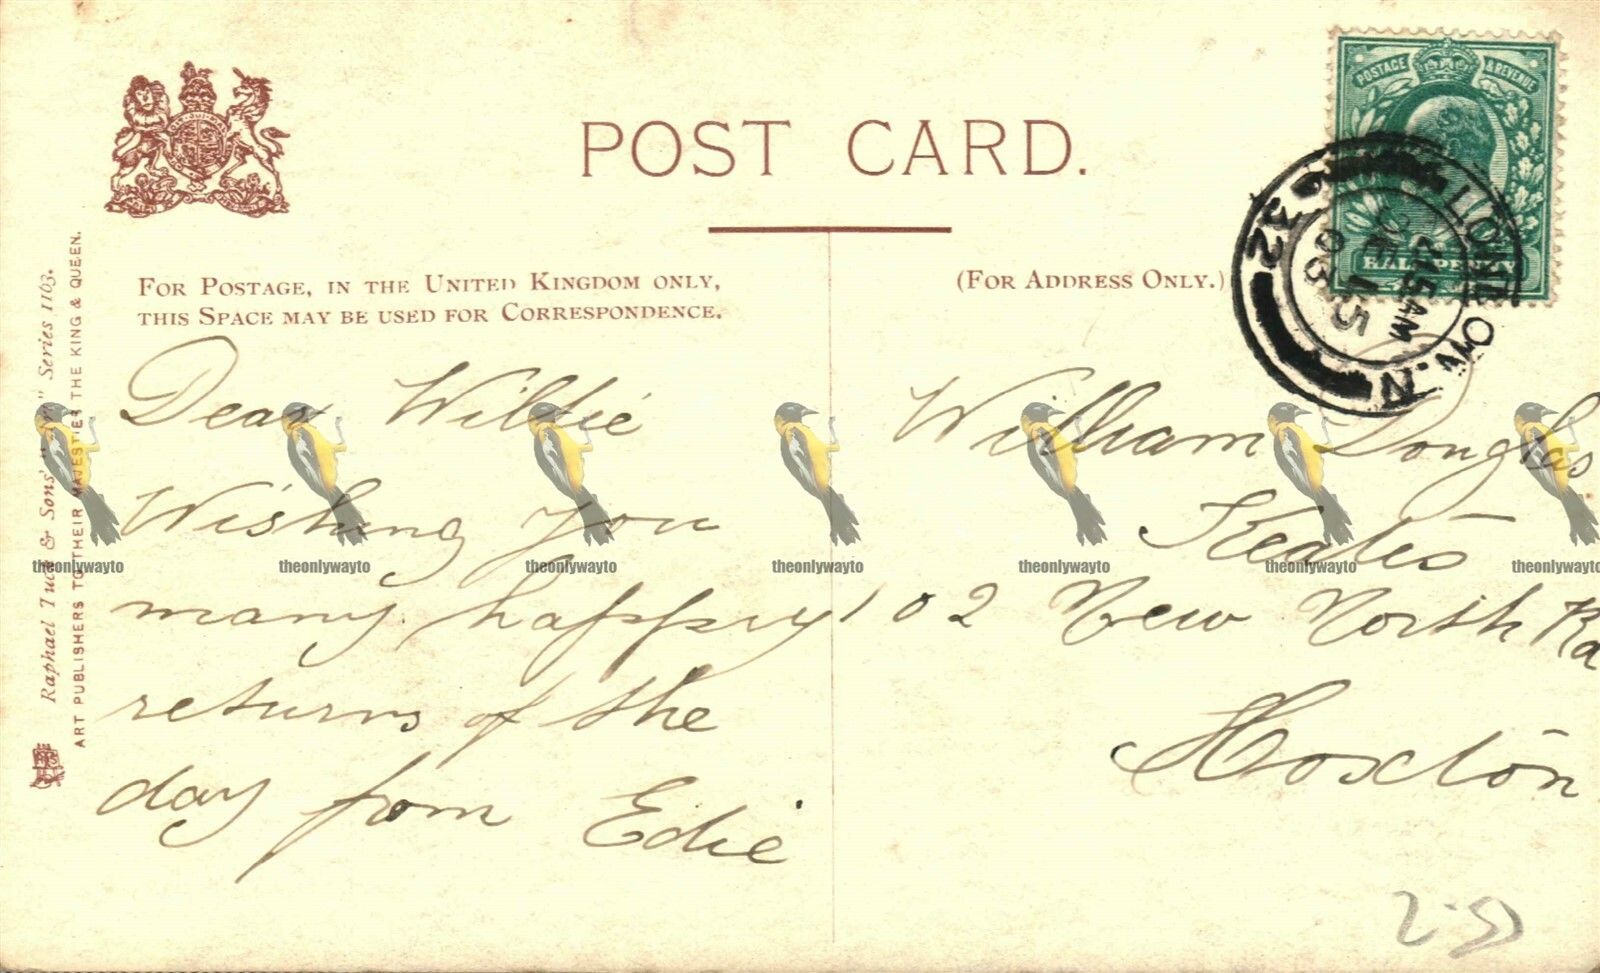 POST CARD.
FOR POSTAGE, IN THE UNITED KINGDOM ONLY,
THIS SPACE MAY BE USED FOR CORRESPONDENCE.
(FOR ADDRESS ONLY.)
Dear Willie
Wishing you
many happy
returns of the
day from Edie
William Douglas
Keates
102 New North Rd
Hoxton
Raphael Tuck & Sons' Series 1163.
ART PUBLISHERS TO THEIR MAJESTIES THE KING & QUEEN.
POSTAGE & REVENUE
HALFPENNY
LONDON. N
32
15
03
theonlywayto theonlywayto theonlywayto theonlywayto theonlywayto theonlywayto theonlywayto